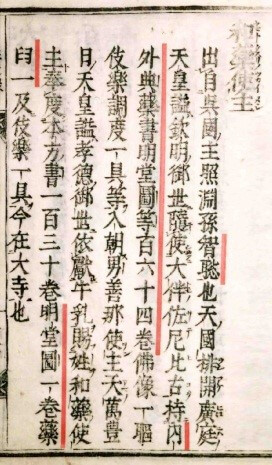 和藥使主
出自吳國主照淵孫智聰也天國排開廣庭
天皇謚欽明御世隨使大伴佐尼比古持內
外典藥書明堂圖等百六十四卷佛像一軀
伎樂調度一具等入朝男善那使主天萬豊
日天皇謚孝德御世依獻牛乳賜姓和藥使
主奉度本方書一百三十卷明堂圖一卷藥
臼一及伎樂一具今在大寺也